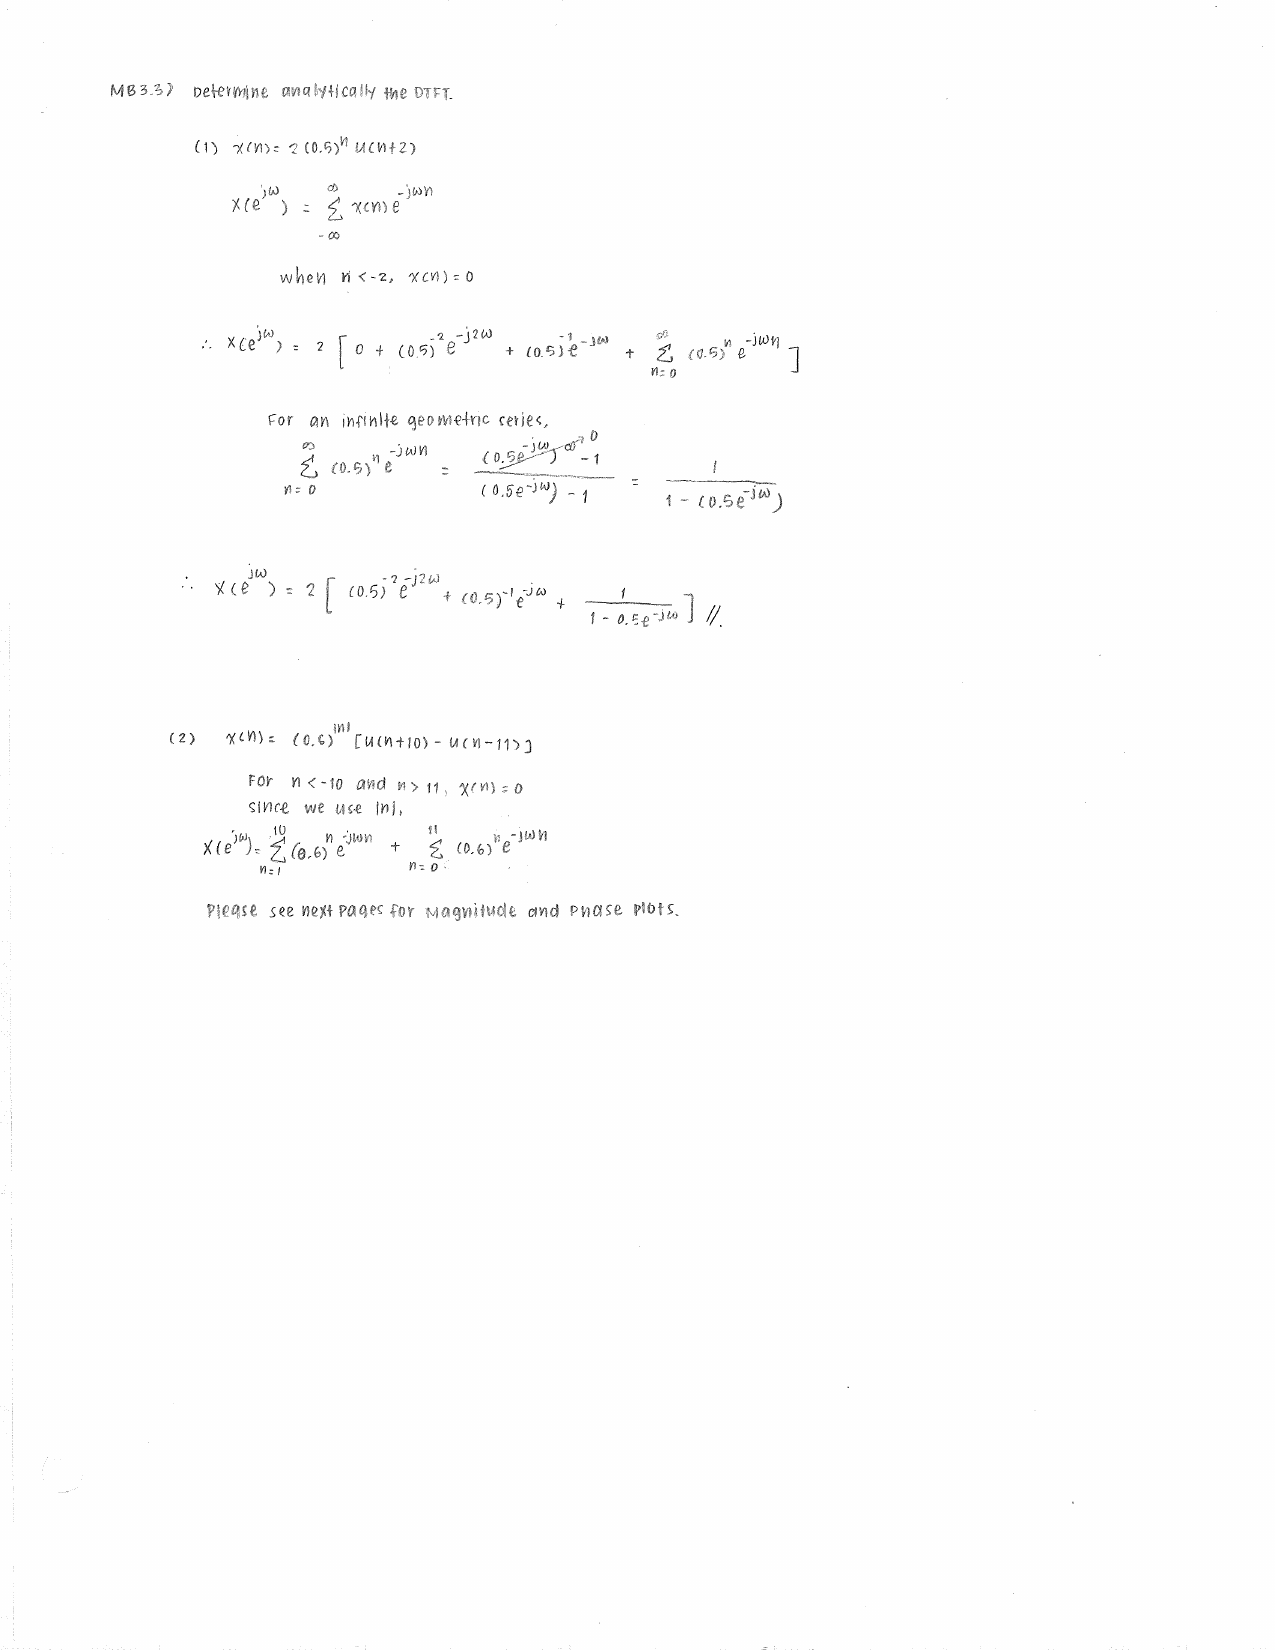 MB3.3) Determine analytically the DTFT.
(1) x(n) = 2 (0.5)^n u(n+2)
X(e^{jω}) = Σ_{-∞}^{∞} x(n) e^{-jωn}
when n < -2, x(n) = 0
∴ X(e^{jω}) = 2 [ 0 + (0.5)^{-2} e^{-j2ω} + (0.5)^{-1} e^{-jω} + Σ_{n=0}^{∞} (0.5)^n e^{-jωn} ]
For an infinite geometric series,
Σ_{n=0}^{∞} (0.5)^n e^{-jωn} = ((0.5e^{-jω})^{∞} → 0 - 1) / ((0.5e^{-jω}) - 1) = 1 / (1 - (0.5e^{-jω}))
∴ X(e^{jω}) = 2 [ (0.5)^{-2} e^{-j2ω} + (0.5)^{-1} e^{-jω} + 1 / (1 - 0.5e^{-jω}) ] //.
(2) x(n) = (0.6)^{|n|} [u(n+10) - u(n-11)]
For n < -10 and n > 11, x(n) = 0
since we use |n|,
X(e^{jω}) = Σ_{n=1}^{10} (0.6)^n e^{-jωn} + Σ_{n=0}^{11} (0.6)^n e^{-jωn}
Please see next pages for Magnitude and Phase Plots.